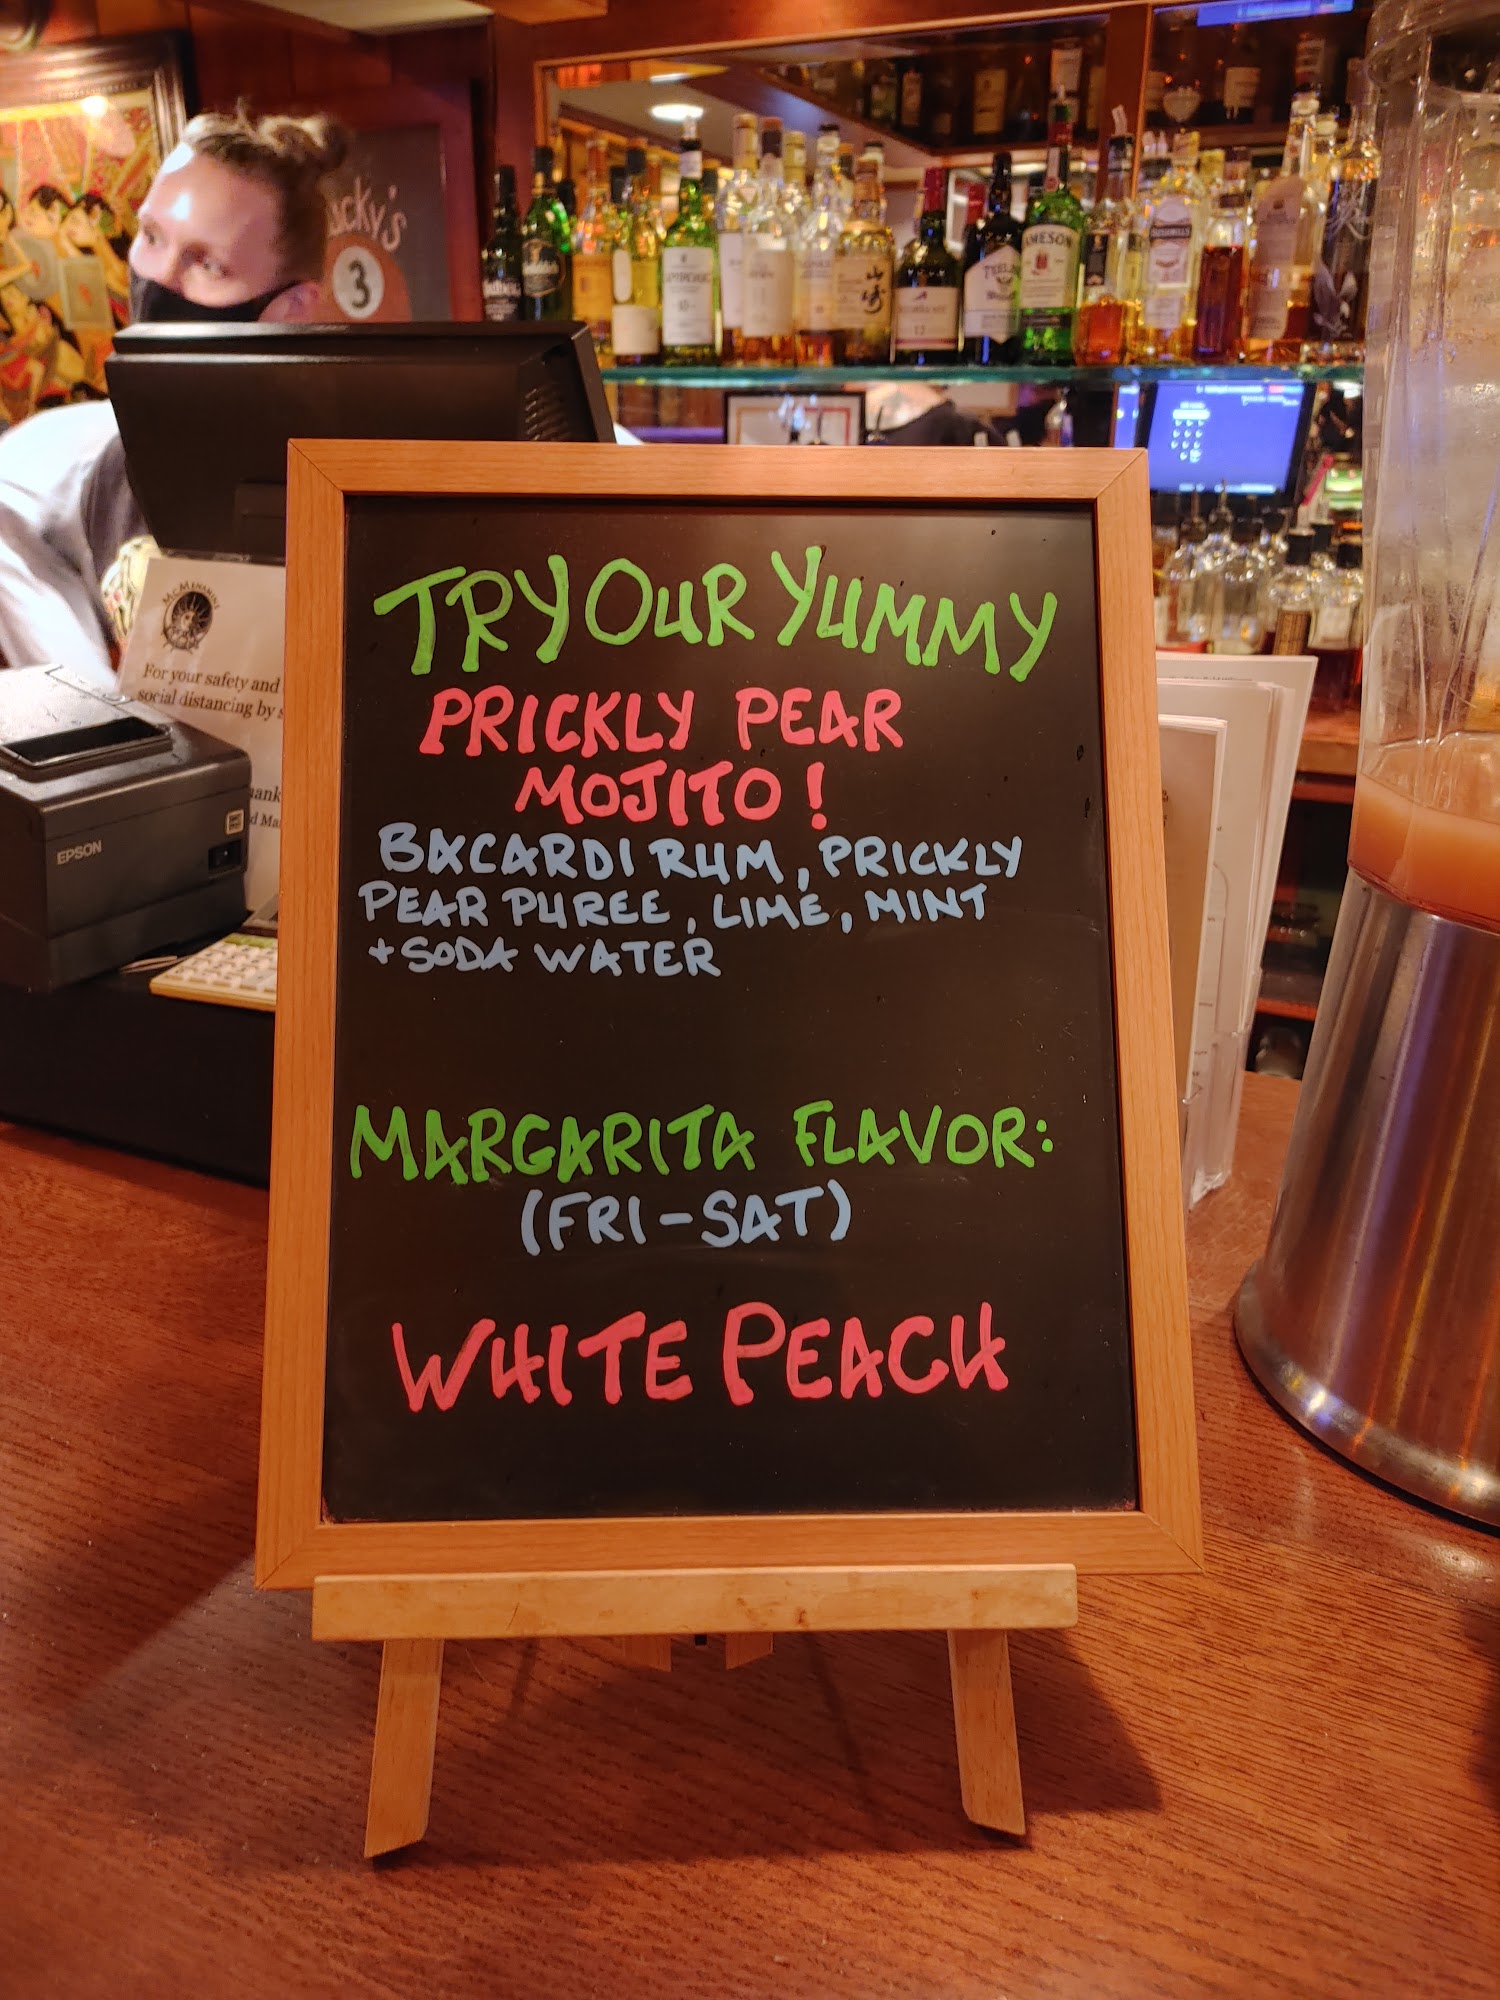 ucky's
3
JAMESON
BUSHMILLS
McMENAMINS
For your safety and
social distancing by s
EPSON
TRY OUR YUMMY
PRICKLY PEAR
MOJITO!
BACARDI RUM, PRICKLY
PEAR PUREE, LIME, MINT
+ SODA WATER
MARGARITA FLAVOR:
(FRI-SAT)
WHITE PEACH